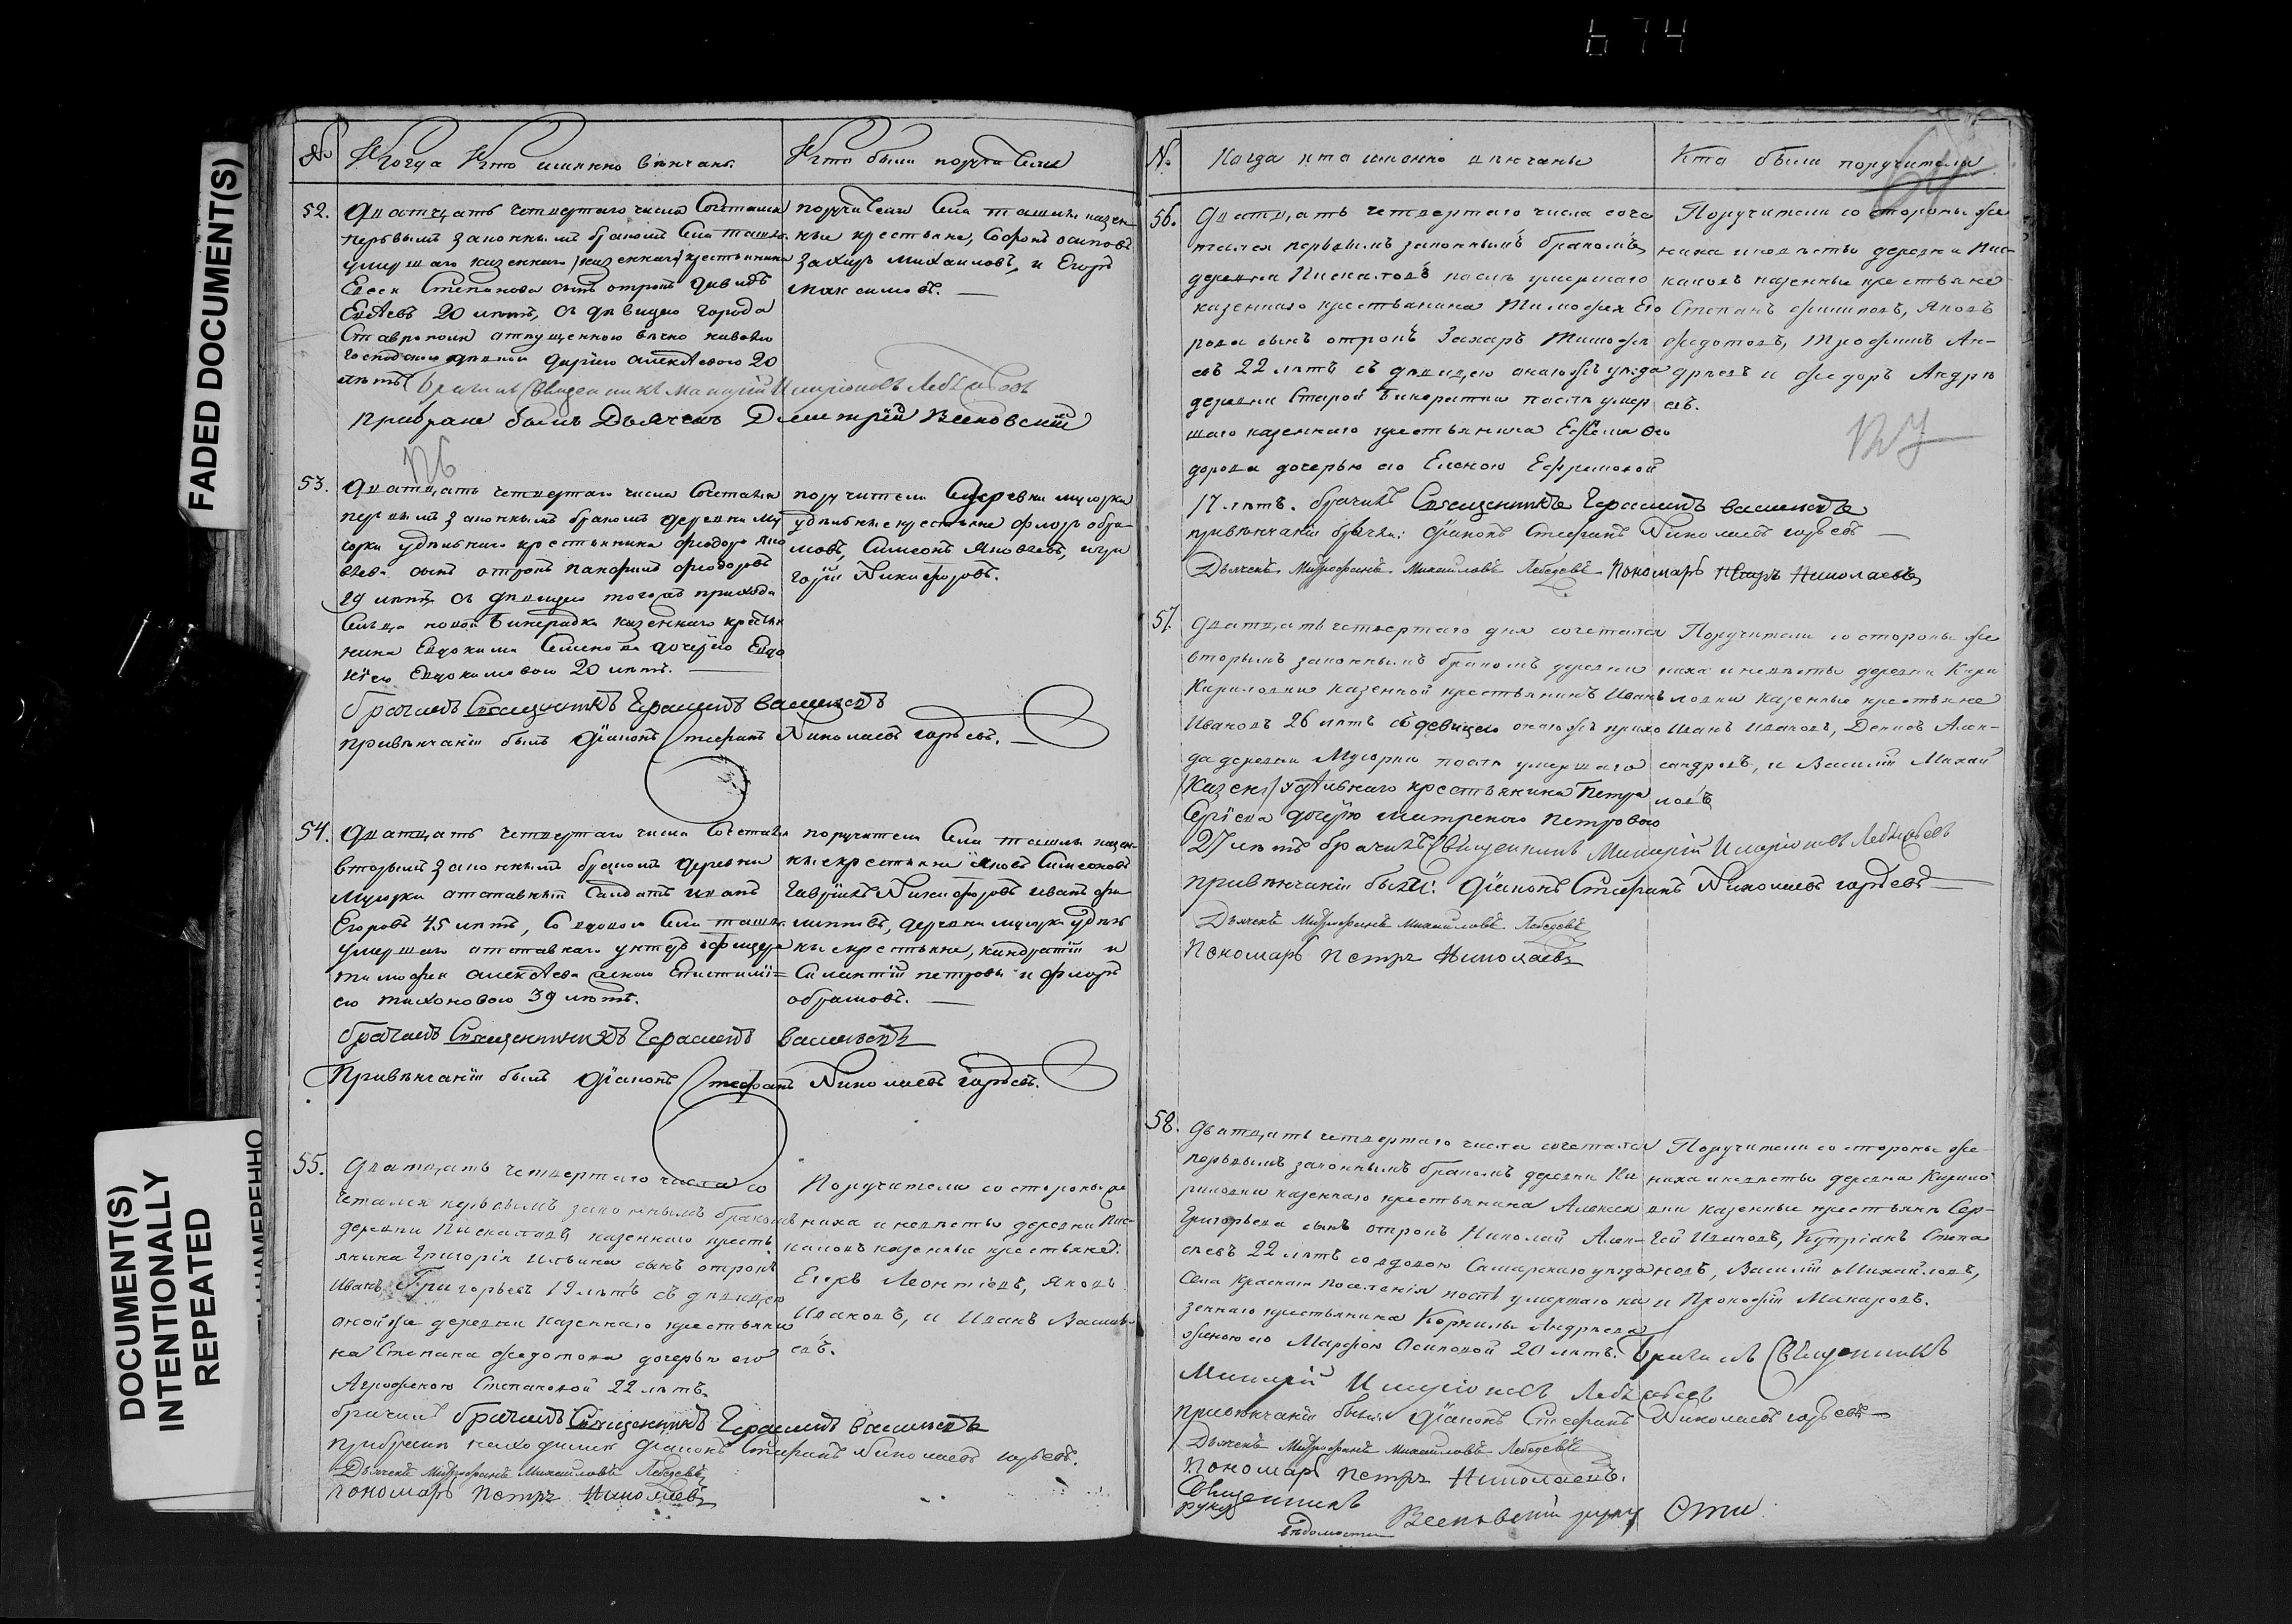 674
FADED DOCUMENT(S)
DOCUMENT(S)
INTENTIONALLY
REPEATED
№
Когда Кто имянно вѣнчаны
Кто были поручители
52.
Дватцать четвертаго числа Сочетался
первымъ законнымъ бракомъ Села Ташлы
умершаго казеннаго /казеннаго/ крестьянина
Степанова сынъ отрокъ Давидъ
20 лѣтъ, съ дѣвицею города
Ставрополя отпущенною вѣчно наволю
Дарiею Алексѣевою 20
лѣтъ бра Священникъ Макарiй Иларiоновъ
прибраке былъ Дьячекъ Димитрiй
поручители Села Ташлы казен-
ные крестьяне, Софронъ Осиповъ
Захаръ Михаиловъ, и Егоръ
Максимовъ.
№6
53.
Дватцать четвертаго числа Сочетался
первымъ законнымъ бракомъ деревни Му
сорки удѣльнаго крестьянина Феодора
сынъ отрокъ Панфилъ Феодоровъ
19 лѣтъ съ дѣвицею тогожъ прихода
Сельца новой Бинарадки казеннаго крестья
нина Евдокима Семенова дочерiю Евдо
кiею Евдокимовою 20 лѣтъ.
бра Священникъ Герасимъ Васильевъ
привѣнчанiи былъ Дiаконъ Стефанъ Николаевъ
поручители деревни мусорки
удѣльные крестьяне Флоръ Обра-
мовъ, Симеонъ Яковлевъ, игри
горiй Никифоровъ.
54.
Дватцать четвертаго числа Сочетался
вторымъ законнымъ бракомъ деревни
Мусорки отставный Салдатъ иванъ
Егоровъ 45 лѣтъ, Со вдовою Села Ташлы
умершаго отставнаго унтеръ офицера
тимофея алексѣева женою
ею тихоновою 39 лѣтъ.
бра Священникъ Герасимъ Васильевъ
Привѣнчанiи былъ Дiаконъ Стефанъ Николаевъ
поручители Села ташлы казен-
ные крестьяне Яковъ Симеоновъ
Гаврiилъ Никифоровъ иванъ фи-
липовъ, деревни мусорки удѣль
ные крестьяне, кондратiй и
петровы и флоръ
обрамовъ.
55.
Дватцать четвертаго числа со
четался первымъ законнымъ бракомъ
деревни Пискаловъ казеннаго кресть
янина Григорiя Ильина сынъ отрокъ
Иванъ Григорьевъ 19 лѣтъ съ дѣвицею
оной же деревни казеннаго крестьяни
на Степана Федотова дочерью его
Агрофеною Степановой 22 лѣтъ.
Священникъ Герасимъ Васильевъ
Дiаконъ Стефанъ Николаевъ
Дьячекъ Митрофанъ Михайловъ Лебедевъ
Пономарь Петръ Николаевъ
Поручители со стороны же
ниха и невѣсты деревни Пис-
каловъ казенные крестьяне:
Егоръ Леонтiевъ, Яковъ
Ивановъ, и Иванъ Василь
евъ.
№
Когда кто именно вѣнчаны
Кто были поручители
64
56.
Дватцать четвертаго числа соче
тался первымъ законнымъ бракомъ
деревни Пискаловъ послѣ умершаго
казеннаго крестьянина Тимофея Его
рова сынъ отрокъ Захаръ Тимофе
евъ 22 лѣтъ съ дѣвицею онагожъ уѣзда
деревни Старой Бинаратки послѣ умер
шаго казеннаго крестьянина Ефрема Фе
дорова дочерью его Еленою Ефремовой
17 лѣтъ. брачилъ Священникъ Герасимъ Васильевъ
привѣнчанiи были: Дiаконъ Стефанъ Николаевъ
Дьячекъ Митрофанъ Михайловъ Лебедевъ Пономарь Петръ Николаевъ
Поручители со стороны же
ниха иневѣсты деревни Пис-
каловъ казенные крестьяне
Степанъ Филиповъ, Яковъ
Федотовъ, Трофимъ Ан-
дреевъ и Федоръ Андре
евъ.
57.
Дватцать четвертаго дня сочетался
вторымъ законнымъ бракомъ деревни
Кириловки казенной крестьянинъ Иванъ
Ивановъ 26 лѣтъ съ девицею онагожъ прихо
да деревни Мусорки послѣ умершаго
/Казен/ удѣльнаго крестьянина Петра
дочерiю Петровою
27 лѣтъ брачилъ Священникъ Макарiй Иларiоновъ
привѣнчанiи были: Дiаконъ Стефанъ Николаевъ
Дьячекъ Митрофанъ Михайловъ Лебедевъ
Пономарь Петръ Николаевъ
Поручители со стороны же
ниха иневѣсты деревни Кири
ловки казенные крестьяне
Иванъ Ивановъ, Денисъ Алек-
сандровъ, и Василiй Михай
ловъ
58.
Дватцать четвертаго числа сочетался
первымъ законнымъ бракомъ деревни Ки
риловки казеннаго крестьянина Алексея
Григорьева сынъ отрокъ Николай Алек-
сѣевъ 22 лѣтъ со вдовою Самарскаго уѣзда
Села Краснаго поселенiя послѣ умершаго ка
зеннаго крестьянина Корнилы Андреева
женою его Марфою Осиповой 20 лѣтъ. Брачилъ Священникъ
Макарiй Иларiоновъ
привѣнчанiи были Дiаконъ Стефанъ Николаевъ
Дьячекъ Митрофанъ Михайловъ Лебедевъ
Пономарь Петръ Николаевъ.
Священникъ
руку
Поручители со стороны же-
ниха иневѣсты деревни Кирило
вки казенные крестьяне Сер-
гей Ивановъ, Купрiянъ Степа
новъ, Василiй Михайловъ,
и Прокофiй Макаровъ.